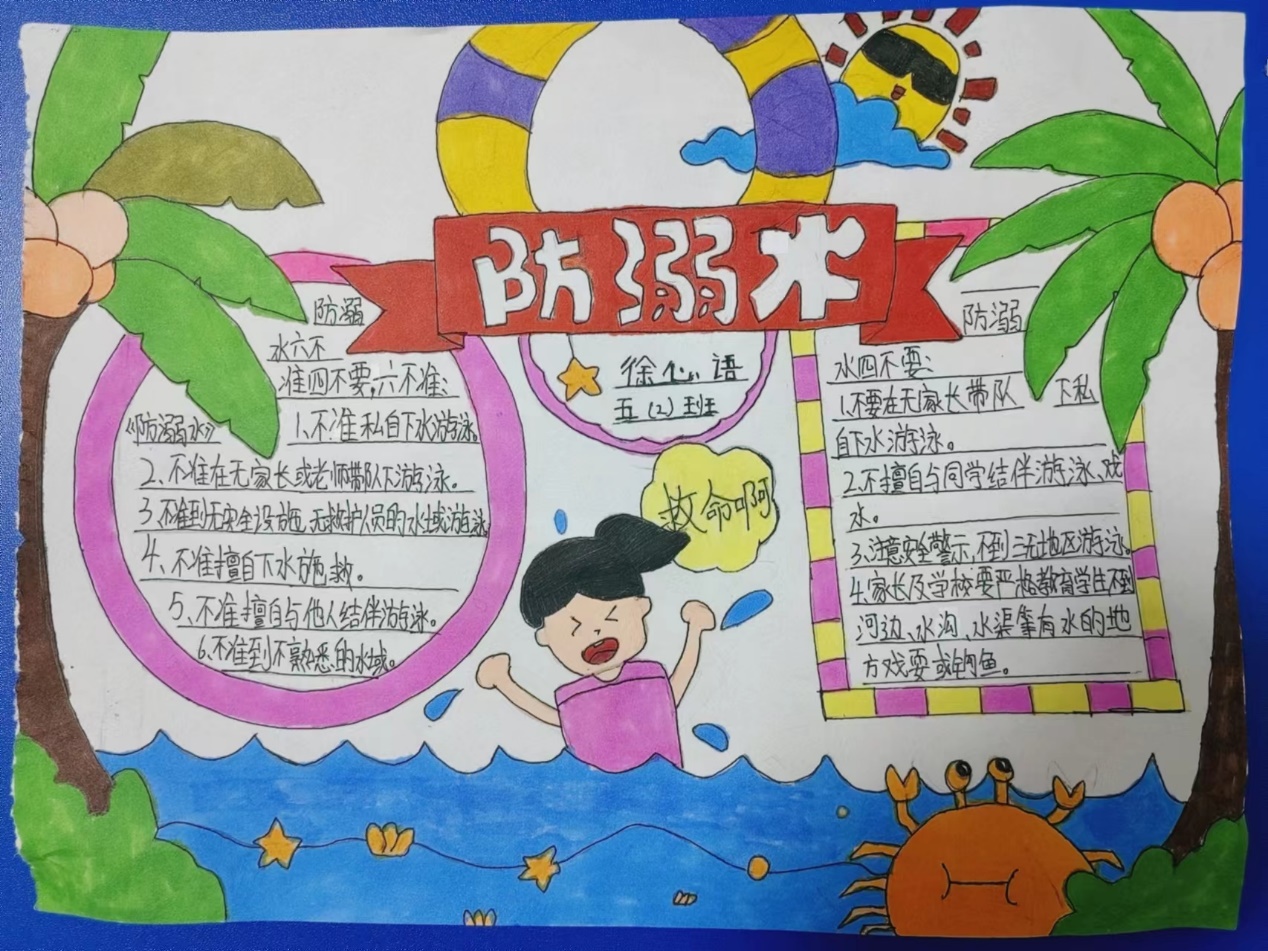 防溺水
防溺
水六不
准四不要,六不准:
《防溺水》 1、不准私自下水游泳。
2、不准在无家长或老师带队下游泳。
3、不准到无安全设施、无救护人员的水域游泳
4、不准擅自下水施救。
5、不准擅自与他人结伴游泳。
6、不准到不熟悉的水域。
徐心语
五(2)班
救命啊
防溺
水四不要:
1、不要在无家长带队 下私
自下水游泳。
2、不擅自与同学结伴游泳、戏
水。
3、注意安全警示,不到三无地区游泳。
4、家长及学校要严格教育学生不到
河边、水沟、水渠等有水的地
方戏耍或钓鱼。